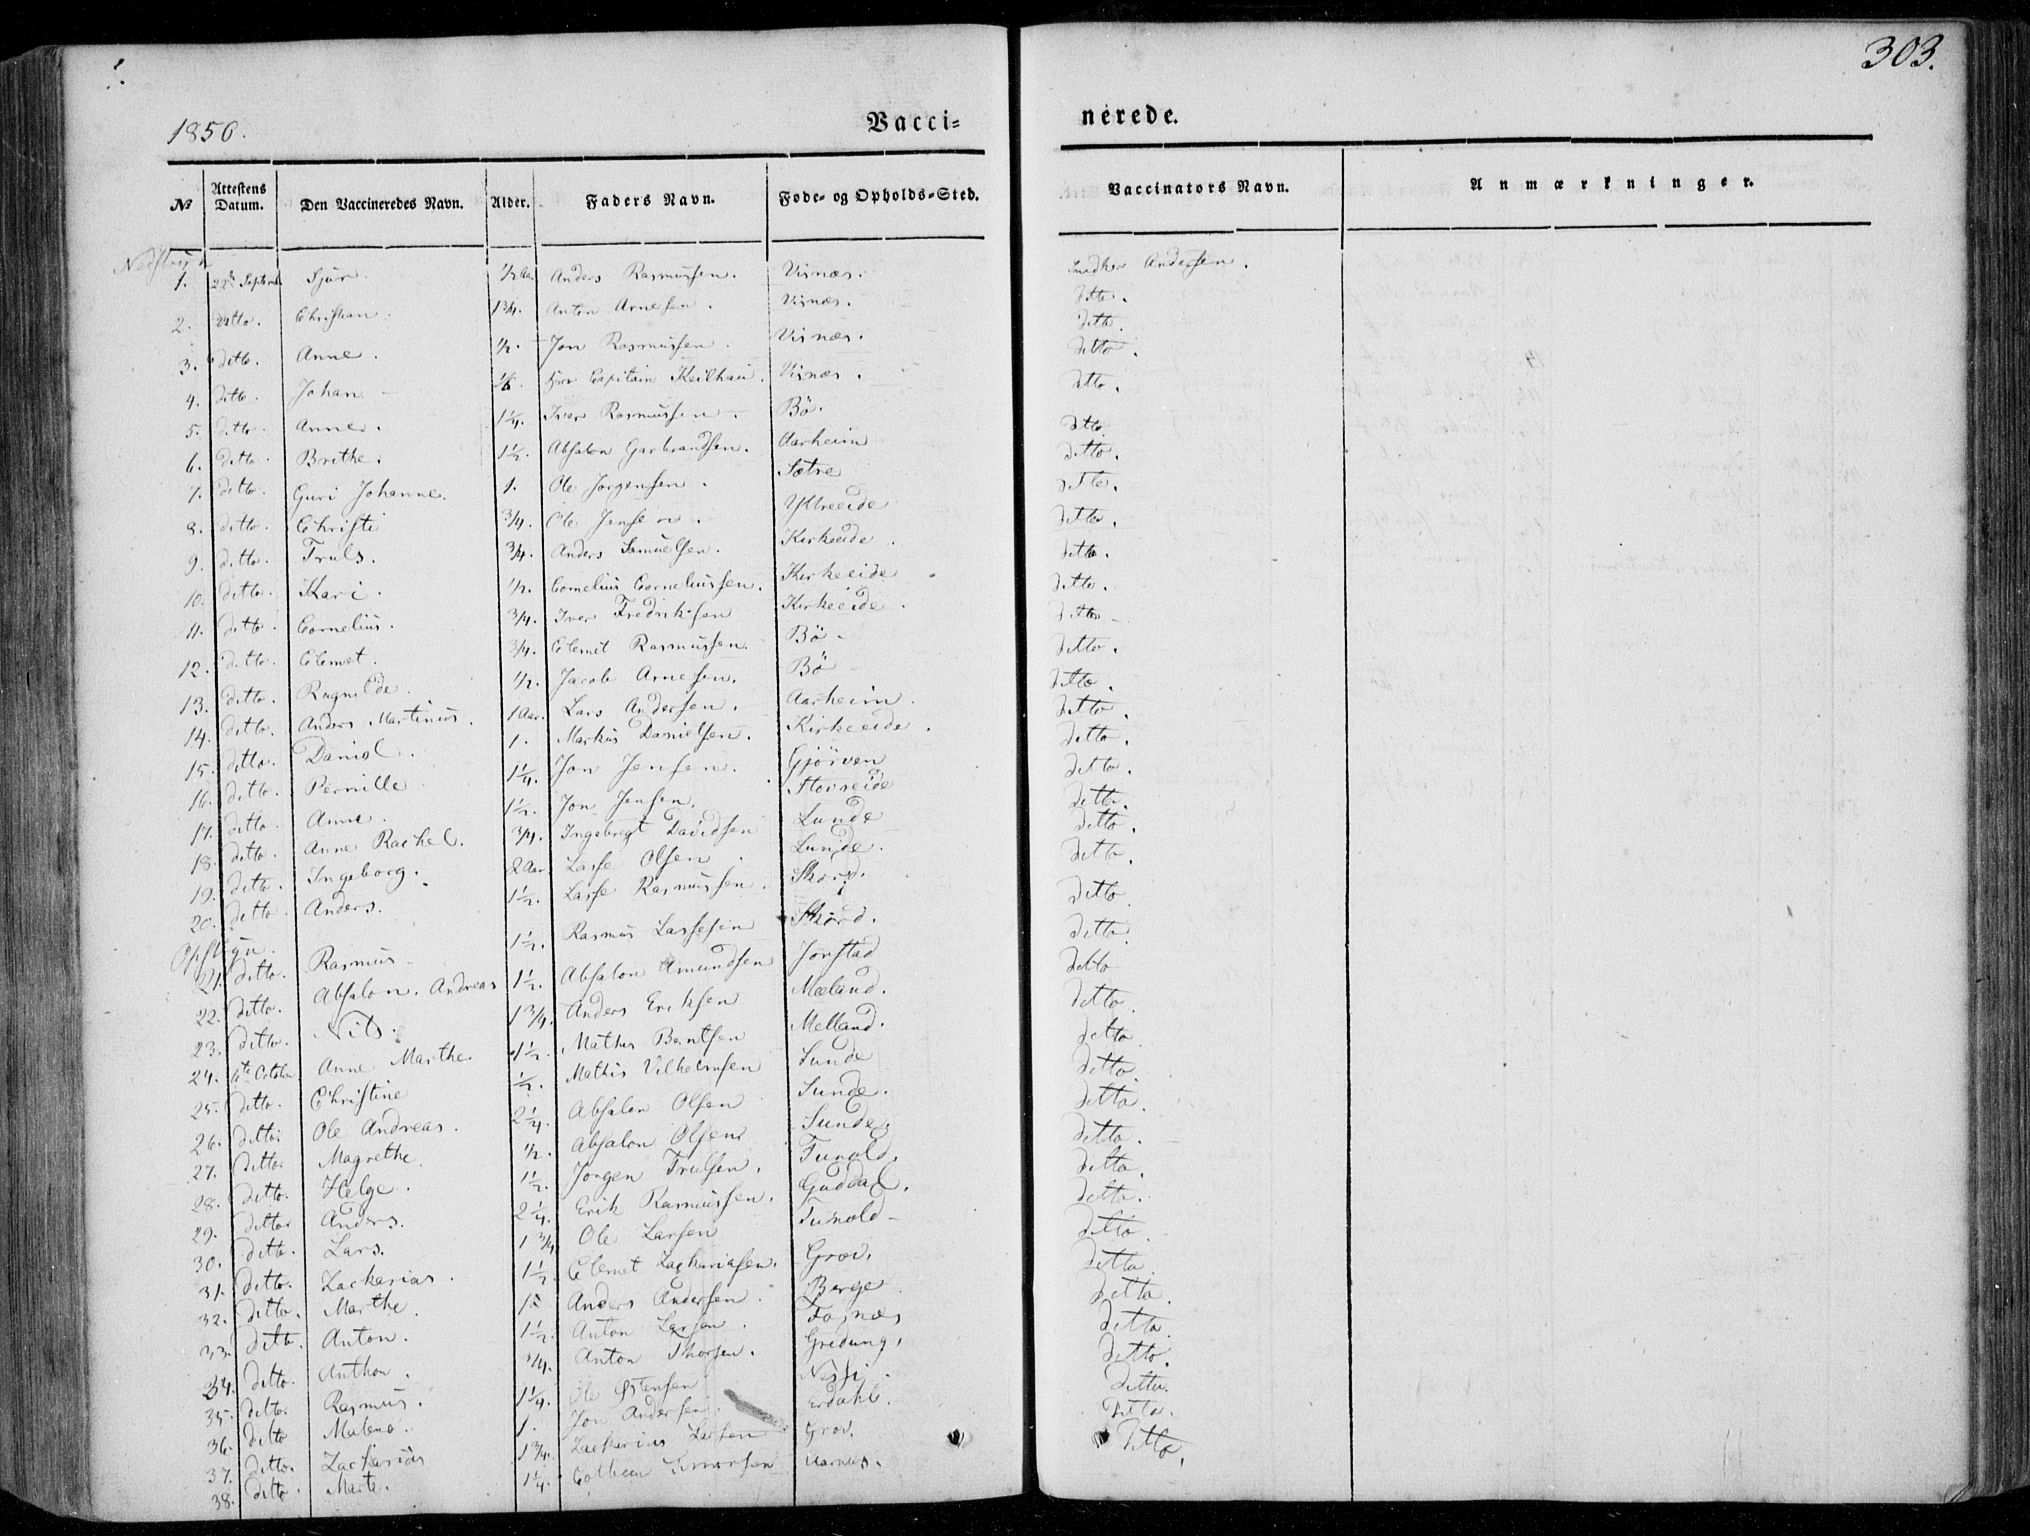 303.
1850.
Vacci= nerede.
No Attestens Datum. Den Vaccineredes Navn. Alder. Faders Navn. Føde- og Opholds-Sted. Vaccinators Navn. Anmærkninger.
1. 22de Septemb. Sjur. 1/2 Aar Anders Rasmussen. Visnæs. Andersen.
2. ditto. Christian. 1 3/4. Anton Arnesen. Visnæs. ditto.
3. ditto. Anne. 1/2. Jon Rasmussen. Visnæs. ditto.
4. ditto. Johan Capitain Keilhau. Visnæs. ditto.
5. ditto. Anne. 1 1/4. Iver Rasmussen. Bö. ditto.
6. ditto. Brithe. 1 1/2. Absalon Garbrandsen. Aarheim ditto
7. ditto. Guri Johanne. 1. Ole Jörgensen. Sætre ditto.
8. ditto. Christi 3/4. Ole Jensen. Ytreeide ditto.
9. ditto. Truls. 3/4. Anders Samuelsen. Kirkeeide. ditto.
10. ditto. Kari. 1/2. Cornelius Corneliussen. Kirkeeide ditto.
11. ditto. Cornelius. 3/4. Iver Fredriksen Kirkeeide. ditto.
12. ditto. Clemet. 3/4. Clemet Rasmussen. Bö ditto
13. ditto. Ragnilde. 1/2. Jacob Arnesen. Bö ditto.
14. ditto. Anders Martinus. 1 Aar. Lars Andersen. Aarheim. ditto.
15. ditto. Daniel. 1. Markus Danielsen. Kirkeeide. ditto.
16. ditto. Pernille 1 1/4. Jon Jensen. Gjörven ditto.
17. ditto Anne. 1 1/2. Jon Jensen. Storeeide ditto.
18. ditto. Anne Rachel. 3/4. Ingebregt Davidsen Lunde ditto.
19. ditto. Ingeborg. 2 Aar Lasse Olsen Lunde. ditto.
20. ditto. Anders. 1 1/2. Lasse Rasmussen. ditto.
21. ditto. Rasmus 1 1/2. Rasmus Lassesen ditto.
22. ditto. Absalon Andreas 1 1/2. Absalon Amundsen Jörstad ditto.
23. ditto. Nils. 1 3/4. Anders Eriksen Mæland. ditto
24. October Anne Marthe 1 1/2. Mathis Berntsen Melland. ditto.
25. ditto. Christine 1/2. Mathis Vilhelmsen Sunde ditto.
26. ditto. Ole Andreas. 2 1/4. Absalon Olsen Sunde. ditto.
27. ditto. Magrethe. 1/2. Absalon Olsen Sunde. ditto.
28. ditto. Helge. 1 1/2. Jörgen Trulsen. ditto.
29. ditto. Anders. 2 1/4. Erik Rasmussen. Guddal. ditto.
30. ditto. Lars. 1 3/4 Ole Larsen Tunold ditto.
31. ditto. Zackarias. 1 1/2. Clemet Zackariasen. Grov. ditto.
32. ditto. Marthe. Anders Andersen. Berge ditto.
33. ditto. Anton. 1 1/2. Anton Larsen. Fosnæs ditto.
34. ditto. Anthon. 3/4. Anton Thorsen. Gredung. ditto.
35. ditto. Rasmus. 1 1/4. Ole Østensen ditto.
36. ditto Malene. 1. Jon Andersen. Erdahl. ditto.
37. ditto. Zackarias 1 3/4. Zackarias Larsen Grov. ditto.
38. ditto Marte. 1 1/4. ditto.